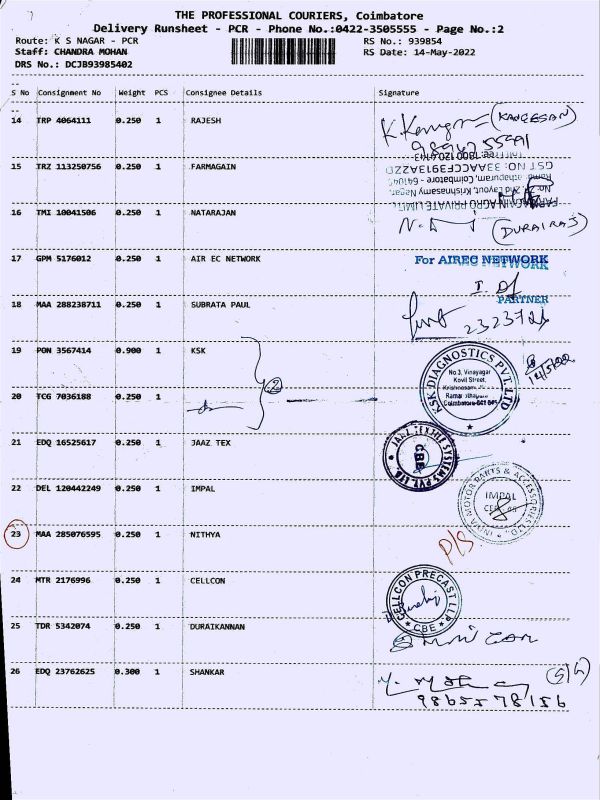 THE PROFESSIONAL COURIERS, Coimbatore
Delivery Runsheet - PCR - Phone No.:0422-3505555 - Page No.:2
Route: K S NAGAR - PCR
RS No.: 939854
Staff: CHANDRA MOHAN
RS Date: 14-May-2022
DRS No.: DCJB93985402
S No Consignment No Weight PCS Consignee Details Signature
14 TRP 4064111 0.250 1 RAJESH
(KANGESAN)
15 TRZ 113250756 0.250 1 FARMAGAIN
Toll Free: 1800 120 4143
GST NO: 33AACCF3913A2ZO
16 TMI 10041506 0.250 1 NATARAJAN
(DURAIRAJ)
17 GPM 5176012 0.250 1 AIR EC NETWORK
For AIREC NETWORK
PARTNER
18 MAA 288238711 0.250 1 SUBRATA PAUL
19 PON 3567414 0.900 1 KSK
KSK DIAGNOSTICS PVT. LTD
No 3, Vinayagar
Kovil Street,
14/5/22
20 TCG 7036188 0.250 1
2
21 EDQ 16525617 0.250 1 JAAZ TEX
JAAZ TEXTILE SYSTEMS PVT. LTD.
CBE
22 DEL 120442249 0.250 1 IMPAL
INDIA MOTOR PARTS & ACCESSORIES LTD.
IMPAL
23 MAA 285076595 0.250 1 NITHYA
P/S
24 MTR 2176996 0.250 1 CELLCON
CELLCON PRECAST LLP
CBE
25 TDR 5342074 0.250 1 DURAIKANNAN
26 EDQ 23762625 0.300 1 SHANKAR
9865578156